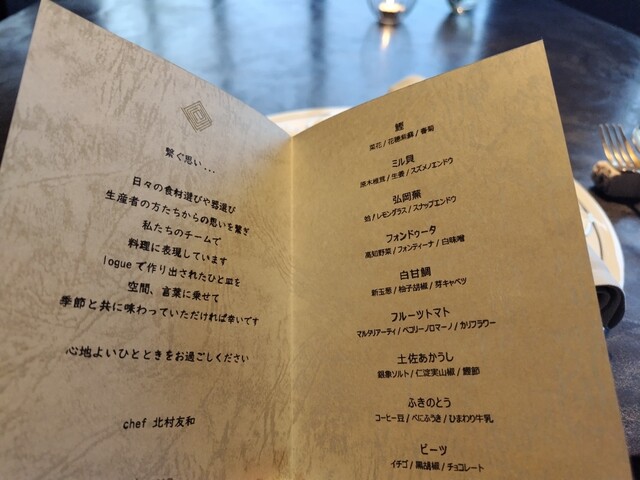 繋ぐ思い...
日々の食材選びや器選び
生産者の方たちからの思いを繋ぎ
私たちのチームで
料理に表現しています
logueで作り出されたひと皿を
空間、言葉に乗せて
季節と共に味わっていただければ幸いです
心地よいひとときをお過ごしください
chef 北村友和
鰹
菜花/花穂紫蘇/春菊
ミル貝
原木椎茸/生姜/スズメノエンドウ
弘岡蕪
蛤/レモングラス/スナップエンドウ
フォンドゥータ
高知野菜/フォンティーナ/白味噌
白甘鯛
新玉葱/柚子胡椒/芽キャベツ
フルーツトマト
マルタリアーティ/ペコリーノロマーノ/カリフラワー
土佐あかうし
銀象ソルト/仁淀実山椒/鰹節
ふきのとう
コーヒー豆/べにふうき/ひまわり牛乳
ビーツ
イチゴ/黒胡椒/チョコレート